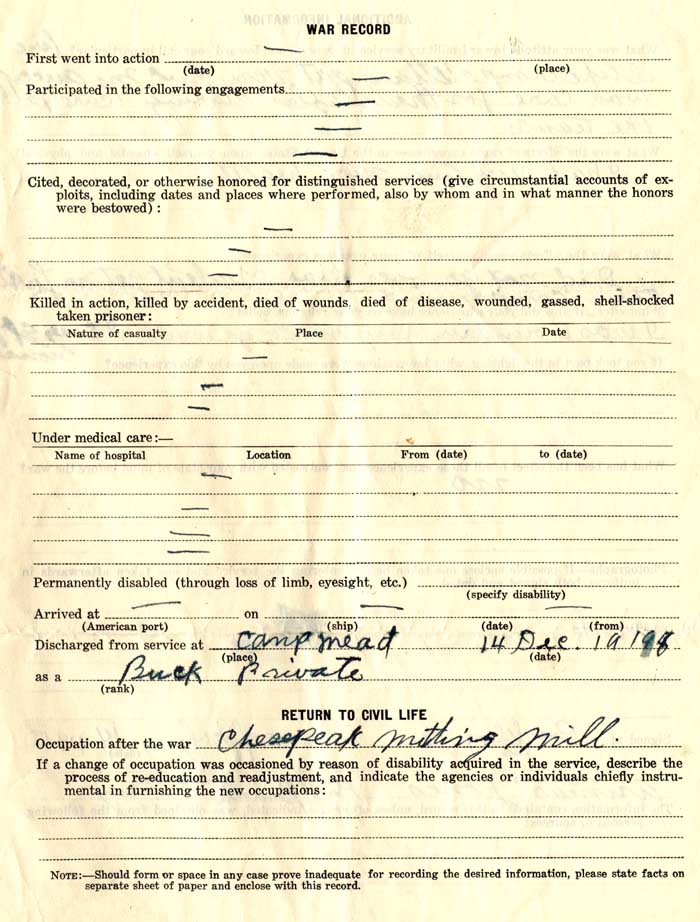 WAR RECORD
First went into action
(date) (place)
Participated in the following engagements
Cited, decorated, or otherwise honored for distinguished services (give circumstantial accounts of ex-
ploits, including dates and places where performed, also by whom and in what manner the honors
were bestowed) :
Killed in action, killed by accident, died of wounds died of disease, wounded, gassed, shell-shocked
taken prisoner:
Nature of casualty Place Date
Under medical care:—
Name of hospital Location From (date) to (date)
Permanently disabled (through loss of limb, eyesight, etc.)
(specify disability)
Arrived at on
(American port) (ship) (date) (from)
Discharged from service at Camp mead 14 Dec. 1918
(place) (date)
as a Buck Private
(rank)
RETURN TO CIVIL LIFE
Occupation after the war Chesepeak mill.
If a change of occupation was occasioned by reason of disability acquired in the service, describe the
process of re-education and readjustment, and indicate the agencies or individuals chiefly instru-
mental in furnishing the new occupations:
NOTE:—Should form or space in any case prove inadequate for recording the desired information, please state facts on
separate sheet of paper and enclose with this record.